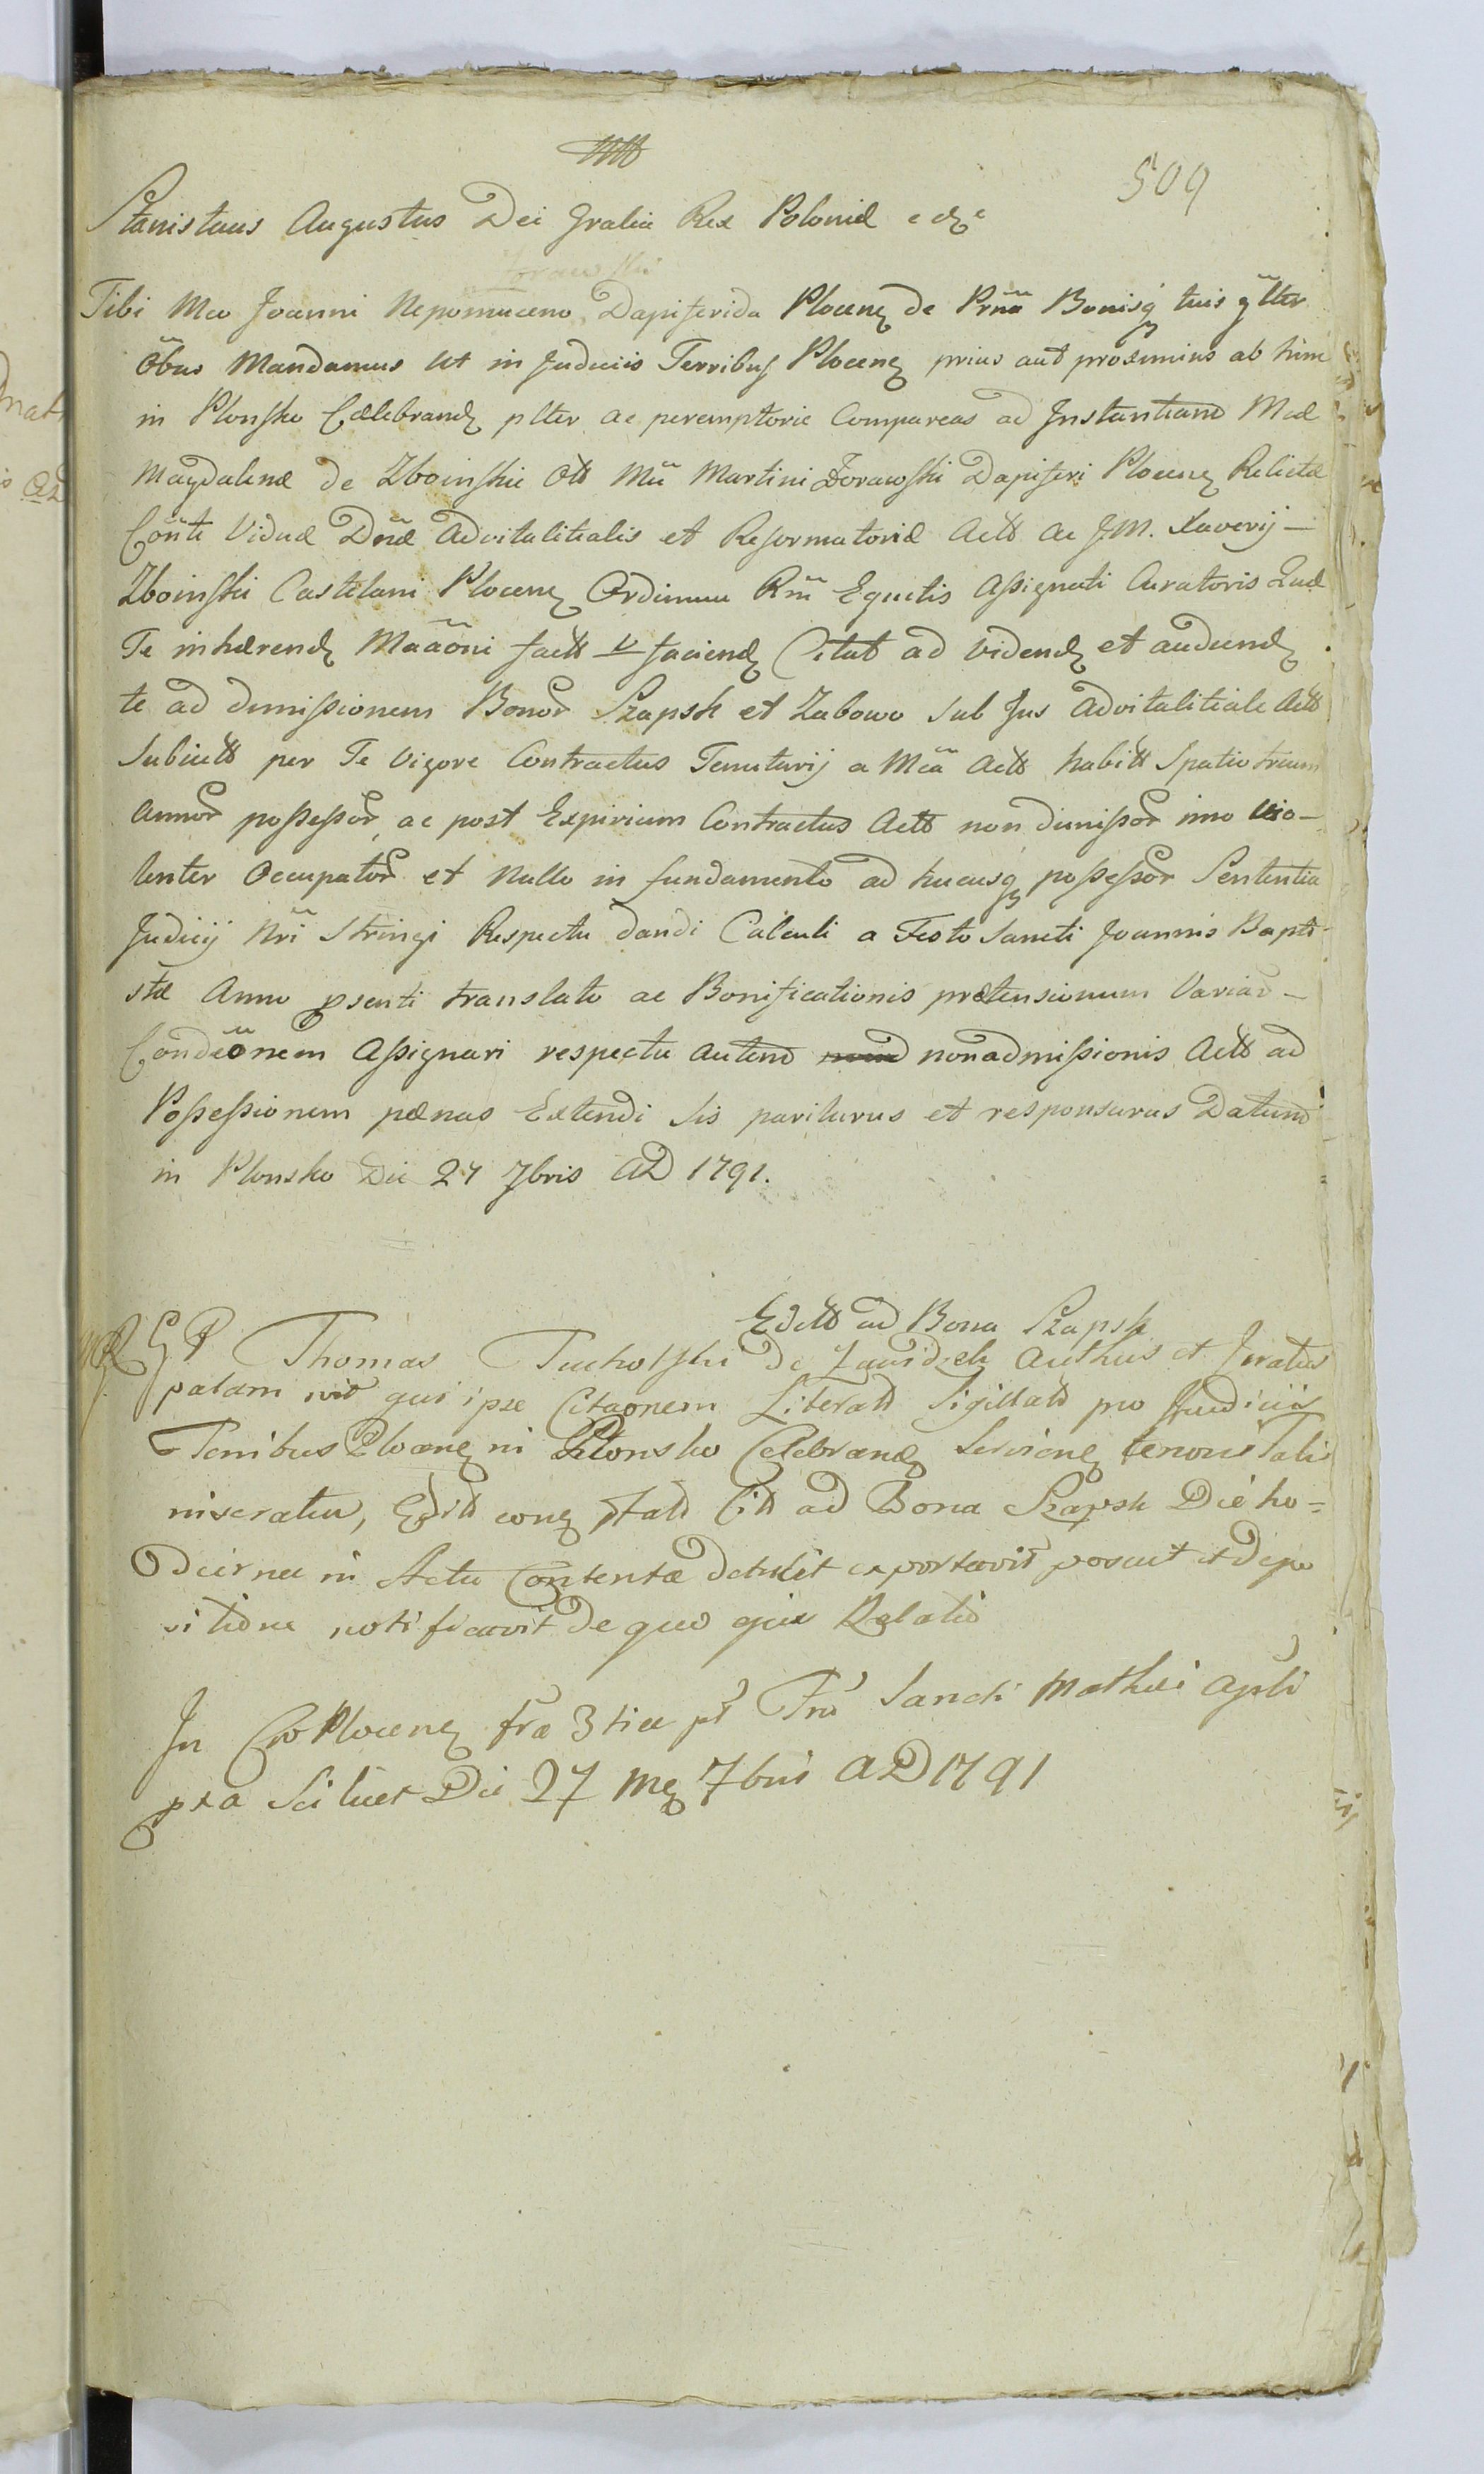 509
Stanislaus Augustus Dei Gratia Rex Poloniæ
Zorawski
Tibi Mco Joanni Nepomuceno Dapiferida Plocenę de Prñã Bonisq tuis gltẽr
õbus Mandamus Ut in Judiciis Terribus Plocenę prius aut proximius ab hinc
in Plonsko Cælebrandę plter ac peremptorie Compareas ad Instantiam Mcæ
Magdalenæ de Zboinskie Ott Mci Martini Zorawski Dapiferi Plocenę Relictæ
Cõnte Viduæ Dnæ Advitalitialis et Reformatoriæ Actt ac J.M. Xaverij —
Zboinski Castelani Plocenę Ordinum Rm̃ Equitis Assignati Curatoris Quæ
Te inhærendę Mããoni factt V faciendę Citat ad videndę et audiendę
te ad dimissionem Bonor Szapsk et Zabowo sub Jus Advitalitiale Actt
Subiectt per Te Vigore Contractus Tenutarij a Mcã Actt habitt Spatio trium
Annor possessor, ac post Expirium Contractus Actt non dimissor imo Vio-
lenter Occupator et Nullo in fundamento ad hucusq possessor Sententia
Judicij Nri Stringi Respectu dandi Calculi a Festo Sancti Joannis Bapti-
stæ Anno psenti translato ac Bonificationis prætensionum Variar —
Condẽonem Assignari respectu autem nonadmissionis Actt ad
Possessionem pænas Extendi sis pariturus et responsurus Datum
in Plonsko Die 27 7bris AD 1791.
Editt ad Bona Szapsk
Thomas Tucholski de Zawidzek Authus et Juratus
palam ipse Citaonem Literatt Sigillatt pro Judiciis
Terribus Plocenę in Plonsko Celebrandę Servienę tenoris Talis
miseratu, ad Bona Szapsk Die ho=
dierna in Actu Contenta detulit exportavit posuit et depo
sitione notificavit de quo ejus Relatio
In Cro Plocenę fra 3tia pt Fm Sancti Mathei Apli
pxa Scilicet Die 27 Mę 7bris AD 1791